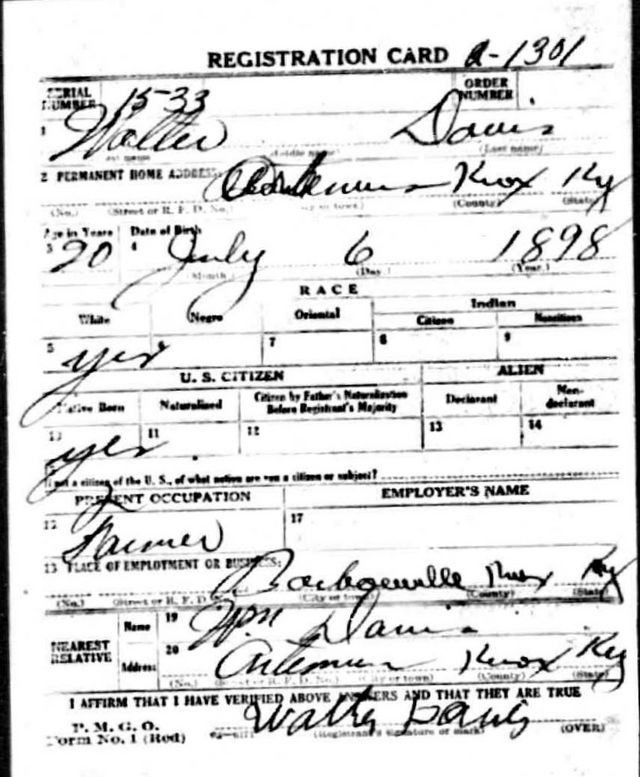 REGISTRATION CARD a-1301
SERIAL NUMBER 1533 ORDER NUMBER
1 Walter Davis
(Middle name) (Last name)
2 PERMANENT HOME ADDRESS: Artemus Knox Ky
(No.) (Street or R. F. D. No.) (City or town) (County) (State)
Age in Years Date of Birth
3 20 4 July 6 1898
(Month.) (Day.) (Year.)
RACE
White Negro Oriental Indian
Citizen Noncitizen
5 yes 7 8 9
U. S. CITIZEN ALIEN
Native Born Naturalized Citizen by Father's Naturalization Before Registrant's Majority Declarant Non-declarant
10 yes 11 12 13 14
If not a citizen of the U. S., of what nation are you a citizen or subject?
PRESENT OCCUPATION EMPLOYER'S NAME
Farmer 17
18 PLACE OF EMPLOYMENT OR BUSINESS:
Barbourville Knox Ky
(No.) (Street or R. F. D. No.) (City or town) (County) (State)
NEAREST RELATIVE Name 19 Wm Davis
Address 20 Artemus Knox Ky
(No.) (Street or R. F. D. No.) (City or town) (County) (State)
I AFFIRM THAT I HAVE VERIFIED ABOVE ANSWERS AND THAT THEY ARE TRUE
P. M. G. O.
Form No. 1 (Red) Walter Davis
(Registrant's signature or mark) (OVER)